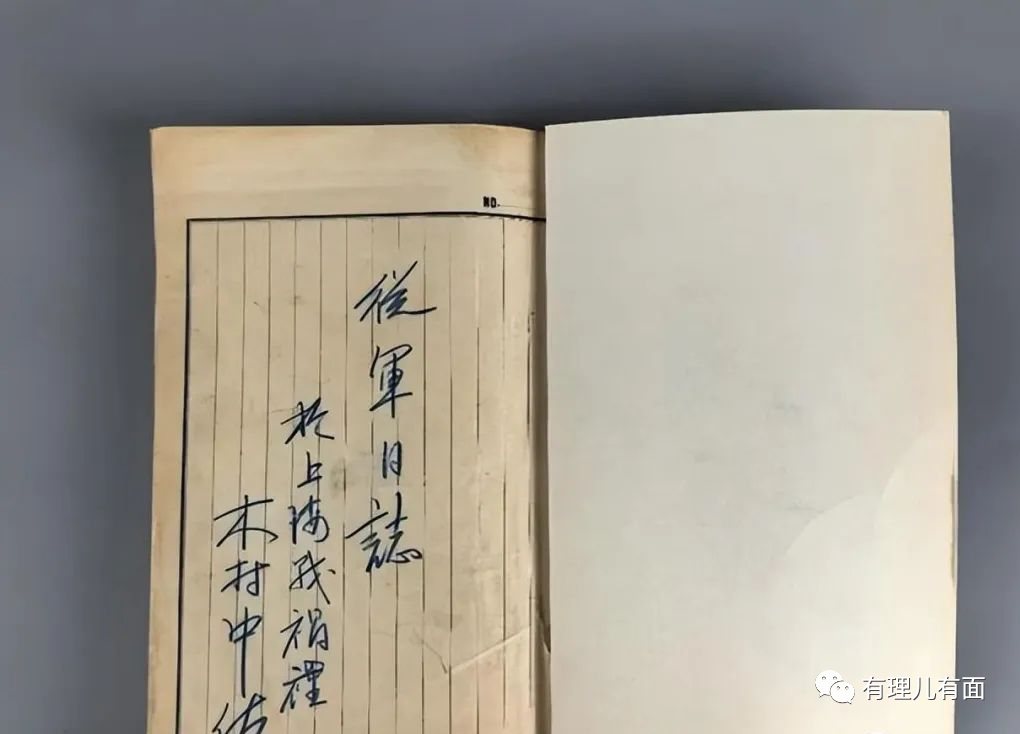 NO.
從軍日誌
於上海戦禍裡
木村中佐
有理儿有面